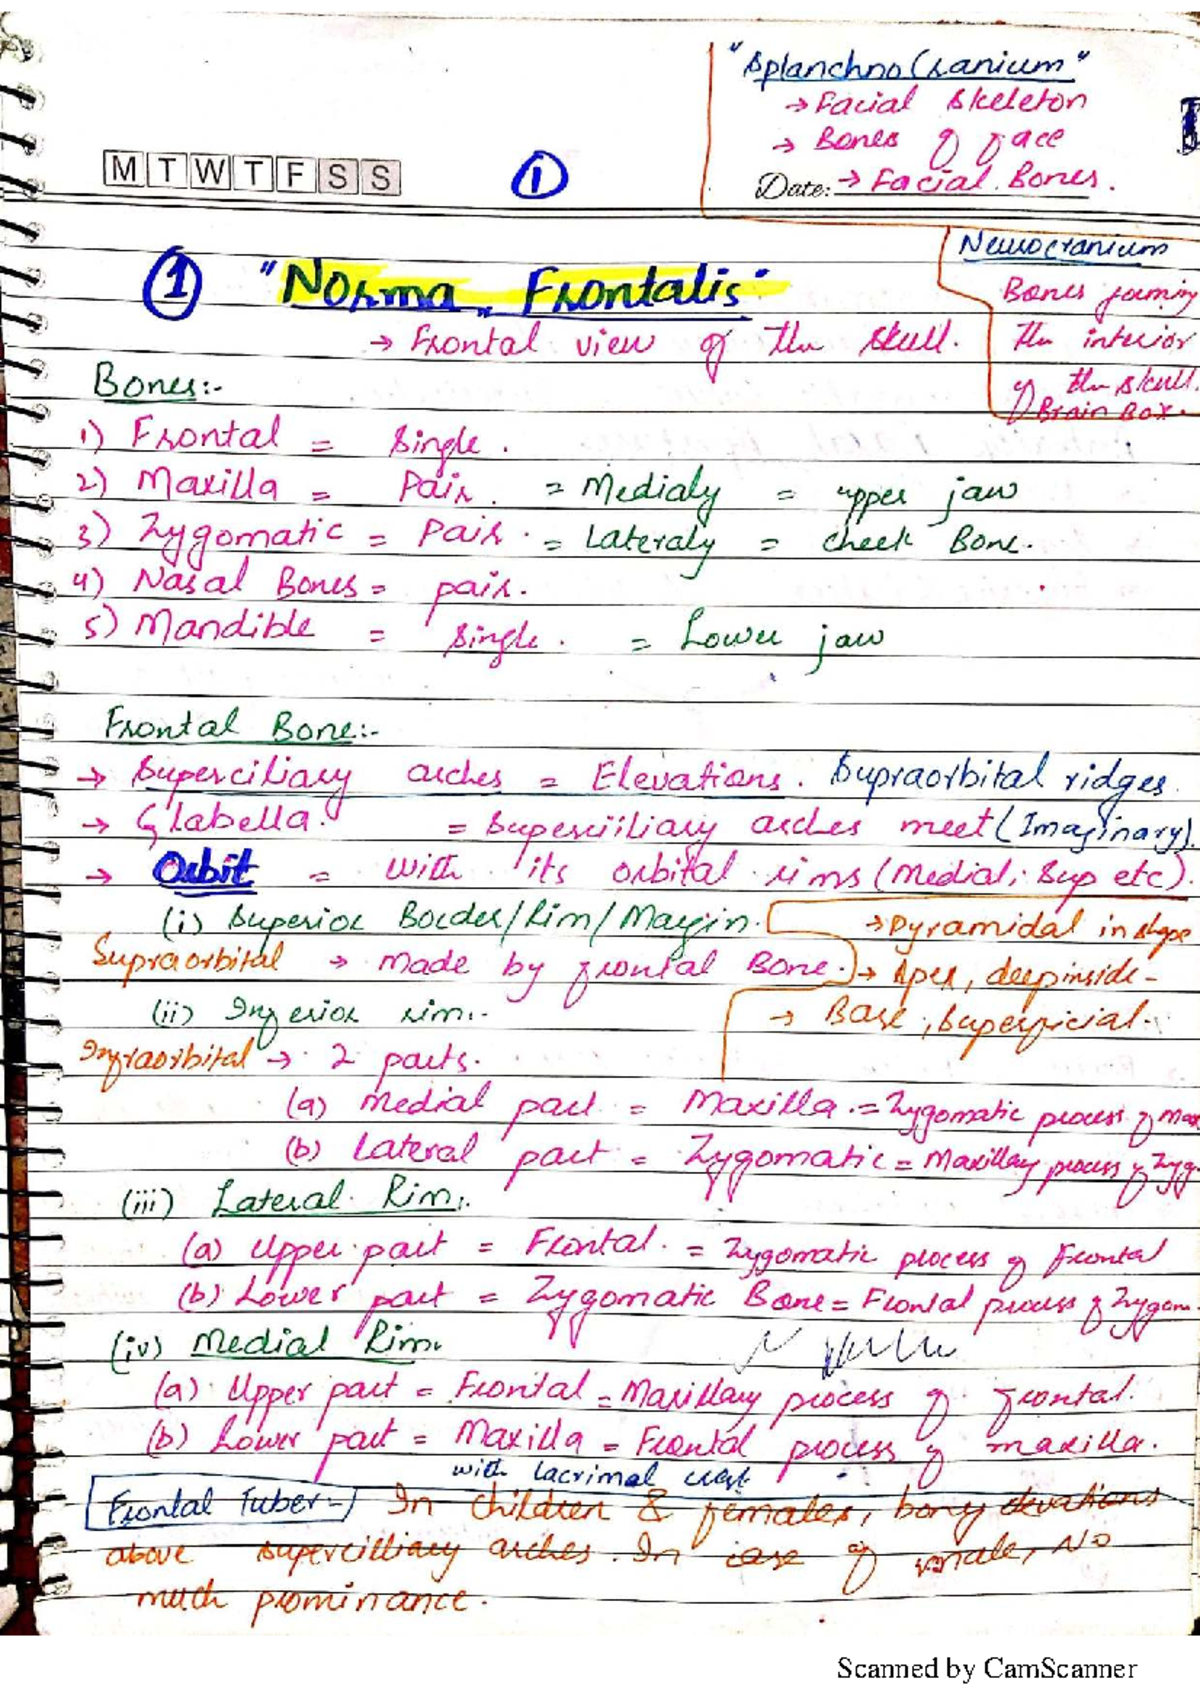 "SplanchnoCranium"
→ Facial Skeleton
→ Bones of face
Date: → Facial Bones.
M T W T F S S
1
Neurocranium
Bones forming
the interior
of the skull.
Brain Box.
1 "Norma Frontalis"
→ Frontal view of the skull.
Bones:-
1) Frontal = Single.
2) Maxilla = Pair. = Medialy = upper jaw
3) Zygomatic = Pair. = Lateraly = cheek Bone.
4) Nasal Bones = pair.
5) Mandible = Single. = Lower jaw
Frontal Bone:-
→ Superciliary arches = Elevations. Supraorbital ridges.
→ Glabella. = Superciiliary arches meet (Imaginary).
→ Orbit = with its orbital rims (Medial, Sup etc).
(i) Superior Border/Rim/Margin. → Pyramidal in shape
Supraorbital → Made by frontal Bone. → Apex, deep inside-
(ii) Inferior rim:- → Base, Superficial.
Infraorbital → 2 parts.
(a) Medial part = Maxilla. = Zygomatic process of max
(b) Lateral part = Zygomatic = Maxillary process of Zyg.
(iii) Lateral Rim:
(a) Upper part = Frontal. = Zygomatic process of Frontal
(b) Lower part = Zygomatic Bone = Frontal process of Zygom.
(iv) Medial Rim.
(a) Upper part = Frontal = Maxillary process of frontal.
(b) Lower part = Maxilla = Frontal process of maxilla.
with lacrimal crest
Frontal Tuber → In children & females, bony elevations
above supercilliary arches. In case of male, No
much prominance.
Scanned by CamScanner